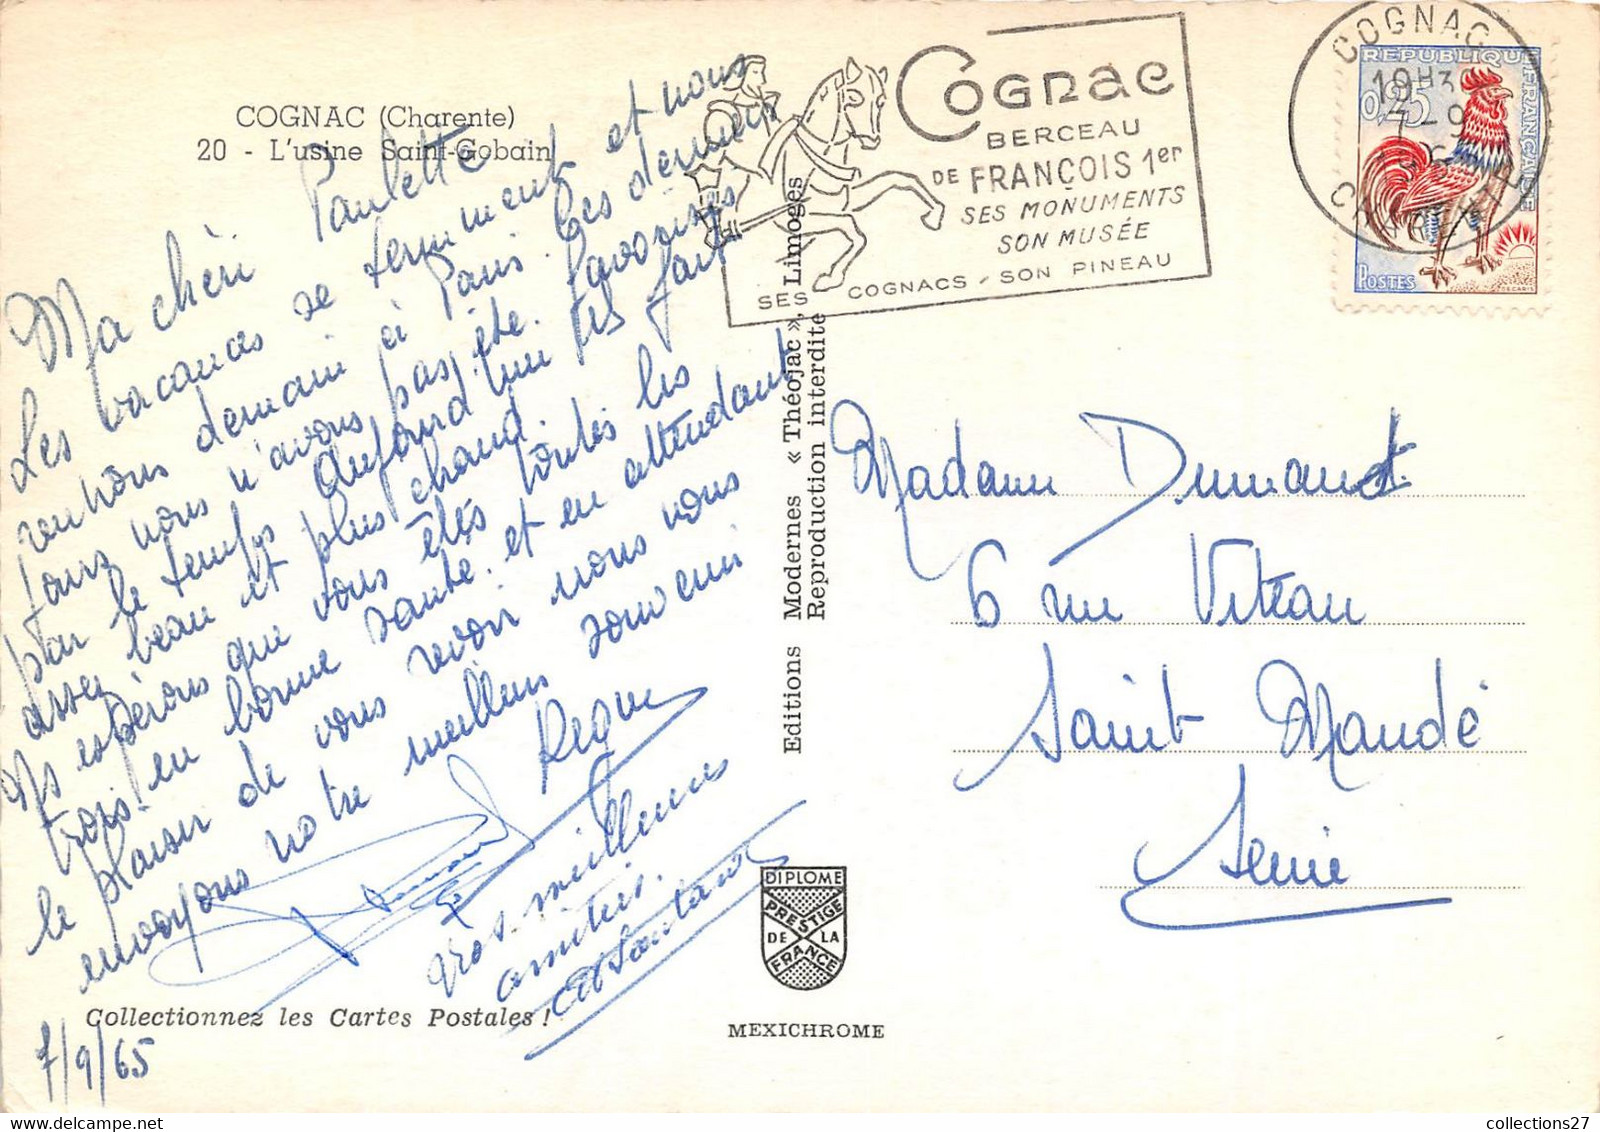 COGNAC (Charente)
20 - L'usine Saint-Gobain
Ma chèri Paulette
Les vacances se terminent et nous
rentrons demain à Paris. Ces derniers
jours nous n'avons pas été favorisés
par le temps Aujourd'hui il fait
assez beau et plus chaud.
Ns espérons que vous êtes toutes les
trois en bonne santé. et en attendant
le plaisir de vous revoir nous vous
envoyons notre meilleur souvenir
Vos meilleures
amitiés.
7/9/65
Collectionnez les Cartes Postales !
Editions Modernes « Théojac », Limoges
Reproduction interdite
DIPLOME
PRESTIGE
DE LA
FRANCE
MEXICHROME
Cognac
BERCEAU
DE FRANÇOIS 1er
SES MONUMENTS
SON MUSÉE
SES COGNACS - SON PINEAU
COGNAC
19H3
7-9
CHARENTE
REPUBLIQUE FRANÇAISE
0,25
POSTES
DECARIS
Madame Dumand
6 rue Viteau
Saint Mandé
Seine
collections27